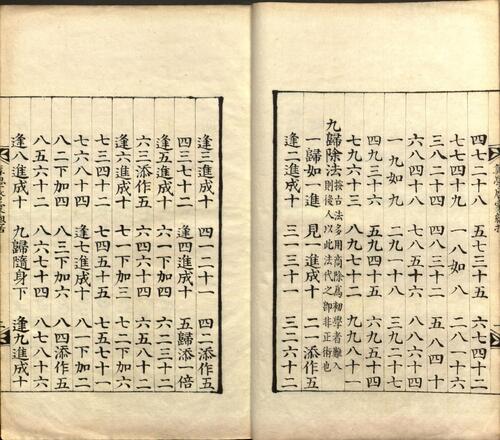 四七二十八　五七三十五　六七四十二
七七四十九　一八如八　二八一十六
三八二十四　四八三十二　五八四十
六八四十八　七八五十六　八八六十四
一九如九　二九一十八　三九二十七
四九三十六　五九四十五　六九五十四
七九六十三　八九七十二　九九八十一
九歸除法　按古法多用商除爲初學者難入
則後人以此法代之即非正術也
一歸如一進　見一進成十　二一添作五
逢二進成十　三一三十一　三二六十二
逢三進成十　四一二十二　四二添作五
四三七十二　逢四進成十　五歸添一倍
逢五進成十　六一下加四　六二三十二
六三添作五　六四六十四　六五八十二
逢六進成十　七一下加三　七二下加六
七三四十二　七四五十五　七五七十一
七六八十四　逢七進成十　八一下加二
八二下加四　八三下加六　八四添作五
八五六十二　八六七十四　八七八十六
逢八進成十　九歸隨身下　逢九進成十